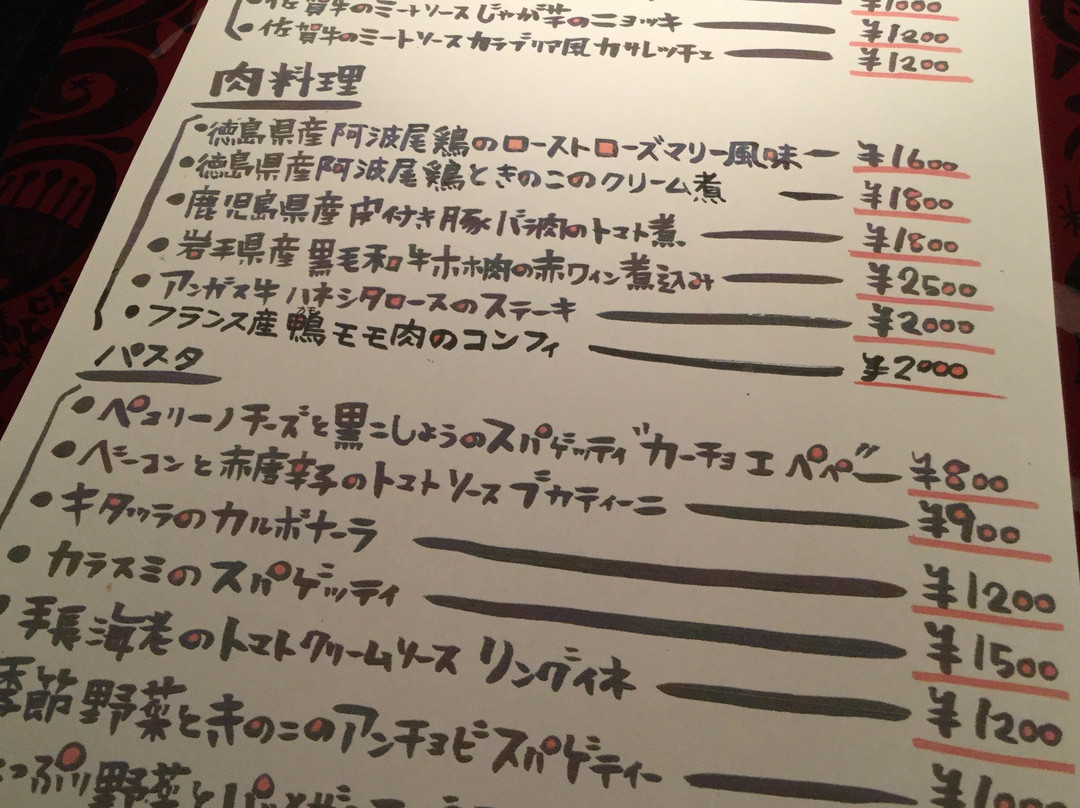 ¥1000
佐賀牛のミートソースじゃが芋のニョッキ ¥1200
佐賀牛のミートソースカラブリア風カサレッチェ ¥1200
肉料理
・徳島県産阿波尾鶏のローストローズマリー風味 ¥1600
・徳島県産阿波尾鶏ときのこのクリーム煮 ¥1800
・鹿児島県産皮付き豚バラ肉のトマト煮 ¥1800
・岩手県産黒毛和牛ホホ肉の赤ワイン煮込み ¥2500
・アンガス牛ハネシタロースのステーキ ¥2000
・フランス産鴨モモ肉のコンフィ ¥2000
パスタ
・ペコリーノチーズと黒こしょうのスパゲッティ"カーチョエペペ" ¥800
・ベーコンと赤唐辛子のトマトソースブカティーニ ¥900
・キタッラのカルボナーラ ¥1200
・カラスミのスパゲッティ ¥1500
手長海老のトマトクリームソース リングイネ ¥1200
季節野菜ときのこのアンチョビスパゲティー
っぷり野菜と